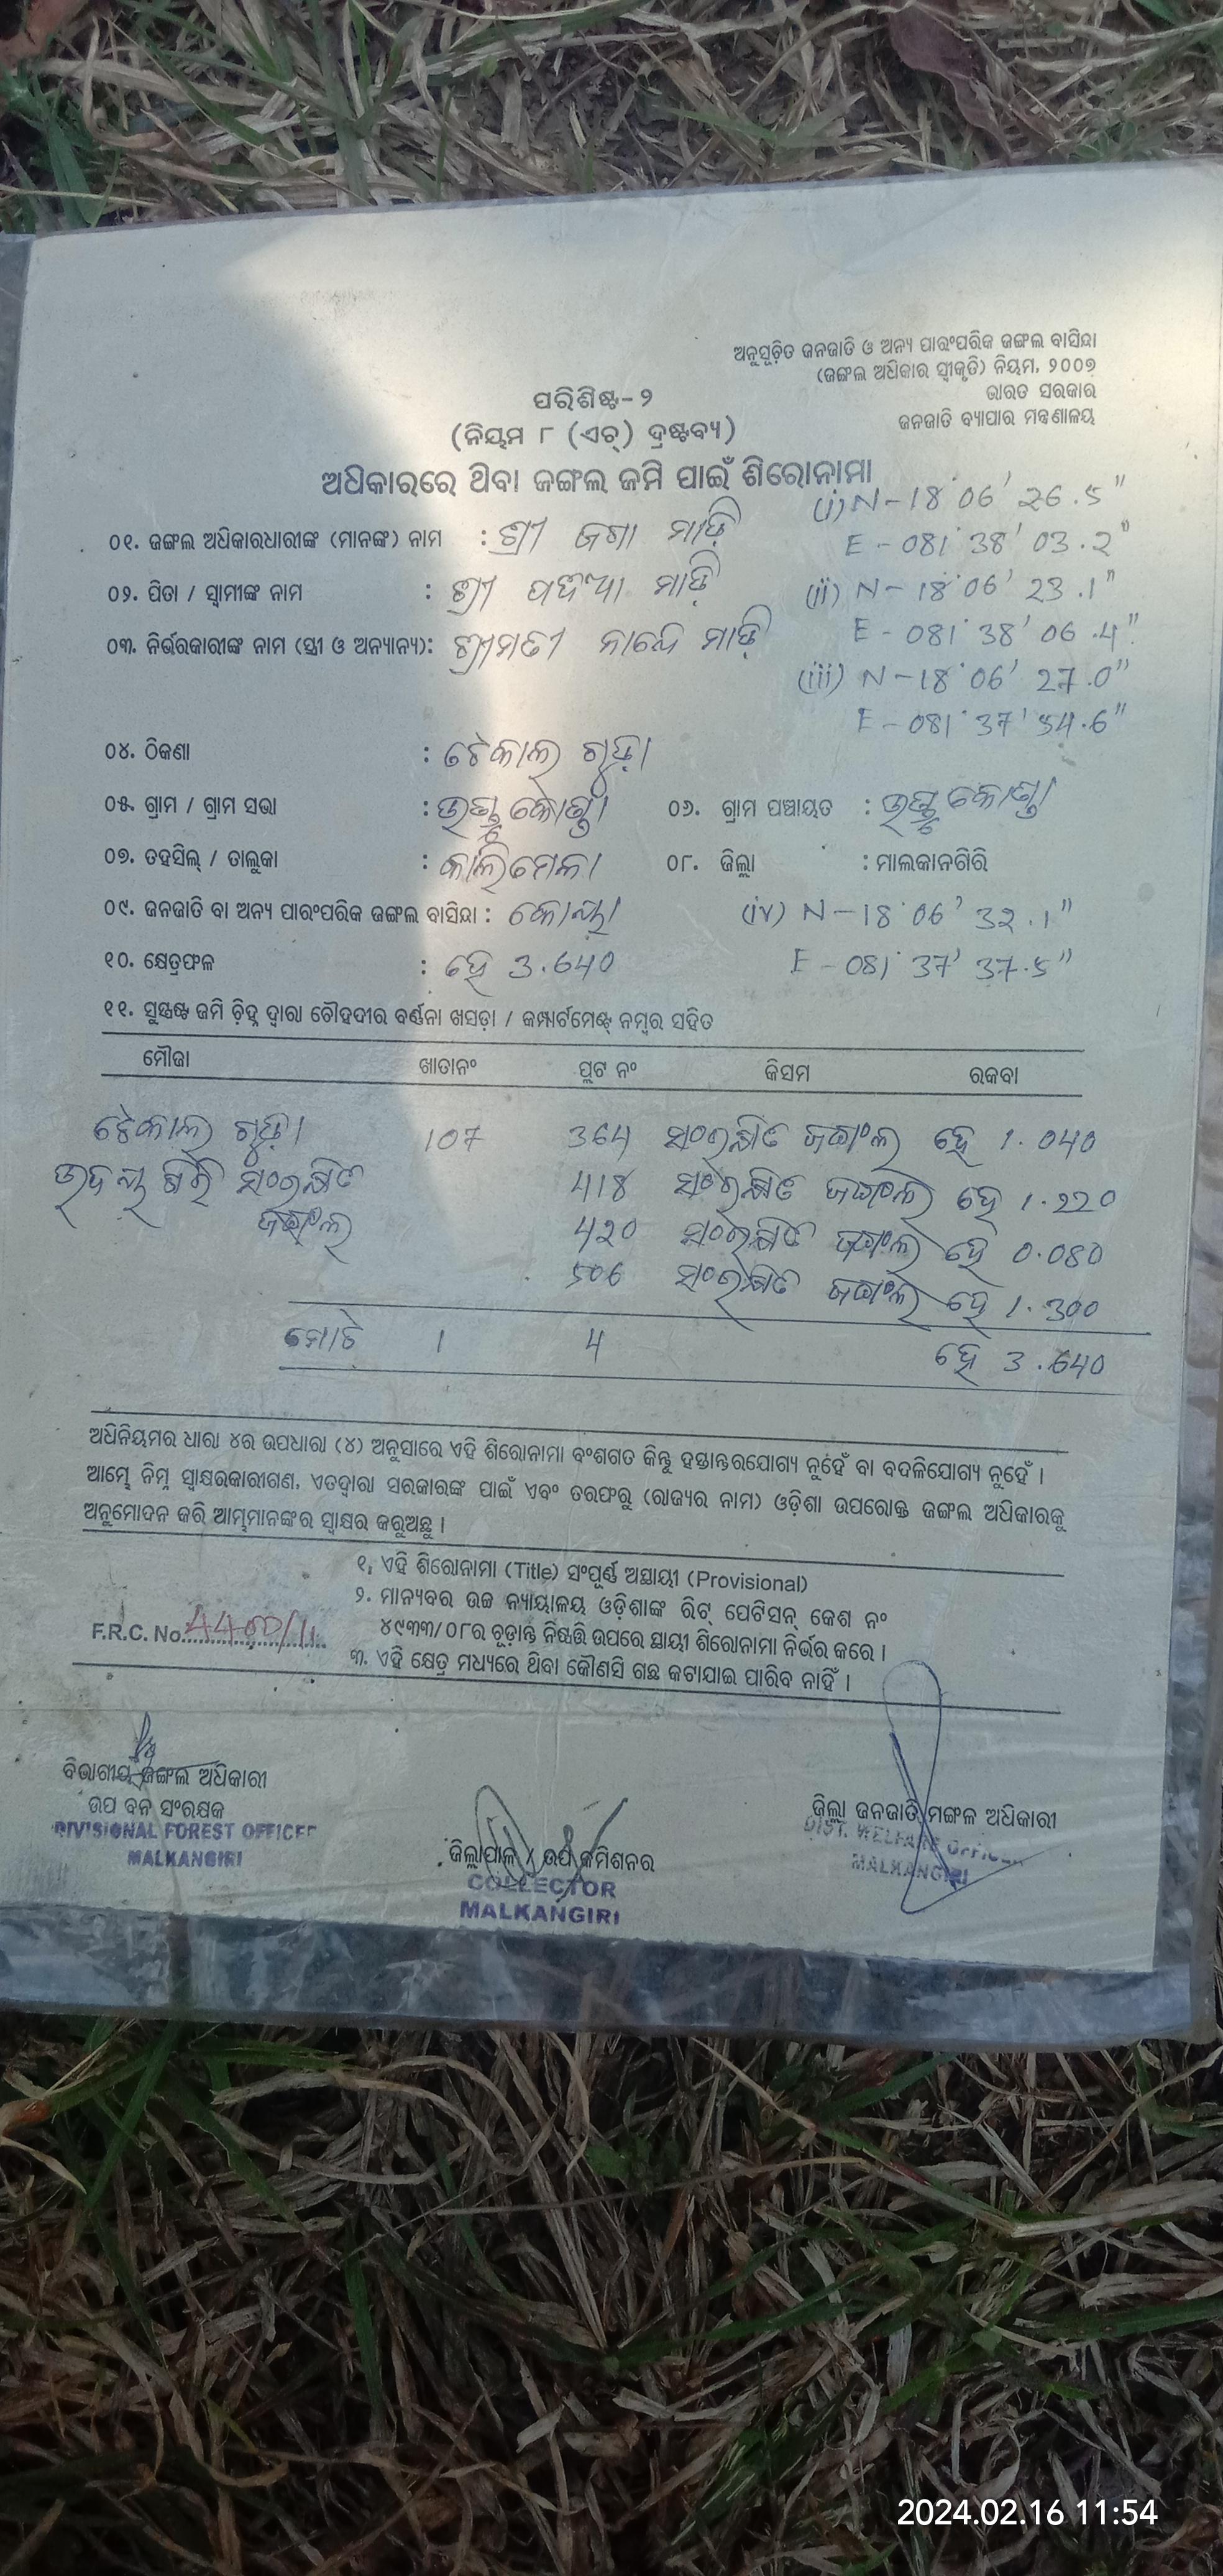 ଅନୁସୂଚିତ ଜନଜାତି ଓ ଅନ୍ୟ ପାରଂପରିକ ଜଙ୍ଗଲ ବାସିନ୍ଦା
(ଜଙ୍ଗଲ ଅଧିକାର ସ୍ୱୀକୃତି) ନିୟମ, ୨୦୦୭
ଭାରତ ସରକାର
ଜନଜାତି ବ୍ୟାପାର ମନ୍ତ୍ରଣାଳୟ
ପରିଶିଷ୍ଟ-୨
(ନିୟମ ୮ (ଏଚ୍) ଦ୍ରଷ୍ଟବ୍ୟ)
ଅଧିକାରରେ ଥିବା ଜଙ୍ଗଲ ଜମି ପାଇଁ ଶିରୋନାମା
(i) N-18°06' 26.5"
୦୧. ଜଙ୍ଗଲ ଅଧିକାରଧାରୀଙ୍କ (ମାନଙ୍କ) ନାମ : ଶ୍ରୀ ଜଗା ମାଡ଼ି
E-081°38' 03.2"
୦୨. ପିତା / ସ୍ୱାମୀଙ୍କ ନାମ : ଶ୍ରୀ ମାଡ଼ି
(ii) N-18°06' 23.1"
E-081°38' 06.4"
୦୩. ନିର୍ଭରକାରୀଙ୍କ ନାମ (ସ୍ତ୍ରୀ ଓ ଅନ୍ୟାନ୍ୟ): ଶ୍ରୀମତୀ ମାଡ଼ି
(iii) N-18°06' 27.0"
E-081°37' 54.6"
୦୪. ଠିକଣା : ଟେକାଲ ଗୁଡ଼ା
୦୫. ଗ୍ରାମ / ଗ୍ରାମ ସଭା :
୦୬. ଗ୍ରାମ ପଞ୍ଚାୟତ :
୦୭. ତହସିଲ୍ / ତାଲୁକା : କାଲିମେଳା
୦୮. ଜିଲ୍ଲା : ମାଲକାନଗିରି
୦୯. ଜନଜାତି ବା ଅନ୍ୟ ପାରଂପରିକ ଜଙ୍ଗଲ ବାସିନ୍ଦା : କୋୟା
(iv) N-18°06' 32.1"
E-081°37' 37.5"
୧୦. କ୍ଷେତ୍ରଫଳ : ହେ 3.640
୧୧. ସୁସ୍ପଷ୍ଟ ଜମି ଚିହ୍ନ ଦ୍ୱାରା ଚୌହଦୀର ବର୍ଣ୍ଣନା ଖସଡ଼ା / କମ୍ପାର୍ଟମେଣ୍ଟ୍ ନମ୍ବର ସହିତ
ମୌଜା ଖାତାନଂ ପ୍ଲଟ ନଂ କିସମ ରକବା
ଟେକାଲ ଗୁଡ଼ା 107 364 ସଂରକ୍ଷିତ ଜଙ୍ଗଲ ହେ 1.040
ସଂରକ୍ଷିତ 418 ସଂରକ୍ଷିତ ଜଙ୍ଗଲ ହେ 1.220
ଜଙ୍ଗଲ 420 ସଂରକ୍ଷିତ ଜଙ୍ଗଲ ହେ 0.080
506 ସଂରକ୍ଷିତ ଜଙ୍ଗଲ ହେ 1.300
ମୋଟ 1 4 ହେ 3.640
ଅଧିନିୟମର ଧାରା ୪ର ଉପଧାରା (୪) ଅନୁସାରେ ଏହି ଶିରୋନାମା ବଂଶଗତ କିନ୍ତୁ ହସ୍ତାନ୍ତରଯୋଗ୍ୟ ନୁହେଁ ବା ବଦଳିଯୋଗ୍ୟ ନୁହେଁ ।
ଆମ୍ଭେ ନିମ୍ନ ସ୍ୱାକ୍ଷରକାରୀଗଣ, ଏତଦ୍ୱାରା ସରକାରଙ୍କ ପାଇଁ ଏବଂ ତରଫରୁ (ରାଜ୍ୟର ନାମ) ଓଡ଼ିଶା ଉପରୋକ୍ତ ଜଙ୍ଗଲ ଅଧିକାରକୁ
ଅନୁମୋଦନ କରି ଆମ୍ଭମାନଙ୍କର ସ୍ୱାକ୍ଷର କରୁଅଛୁ ।
୧. ଏହି ଶିରୋନାମା (Title) ସଂପୂର୍ଣ୍ଣ ଅସ୍ଥାୟୀ (Provisional)
୨. ମାନ୍ୟବର ଉଚ୍ଚ ନ୍ୟାୟାଳୟ ଓଡ଼ିଶାଙ୍କ ରିଟ୍ ପେଟିସନ୍ କେଶ ନଂ
୪୯୩୩/୦୮ର ଚୂଡ଼ାନ୍ତ ନିଷ୍ପତ୍ତି ଉପରେ ସ୍ଥାୟୀ ଶିରୋନାମା ନିର୍ଭର କରେ ।
F.R.C. No.
୩. ଏହି କ୍ଷେତ୍ର ମଧ୍ୟରେ ଥିବା କୌଣସି ଗଛ କଟାଯାଇ ପାରିବ ନାହିଁ ।
ବିଭାଗୀୟ ଜଙ୍ଗଲ ଅଧିକାରୀ
ଉପ ବନ ସଂରକ୍ଷକ
DIVISIONAL FOREST OFFICER
MALKANGIRI
ଜିଲ୍ଲାପାଳ / ଉପ କମିଶନର
COLLECTOR
MALKANGIRI
ଜିଲ୍ଲା ଜନଜାତି ମଙ୍ଗଳ ଅଧିକାରୀ
DIST. WELFARE OFFICER
MALKANGIRI
2024.02.16 11:54